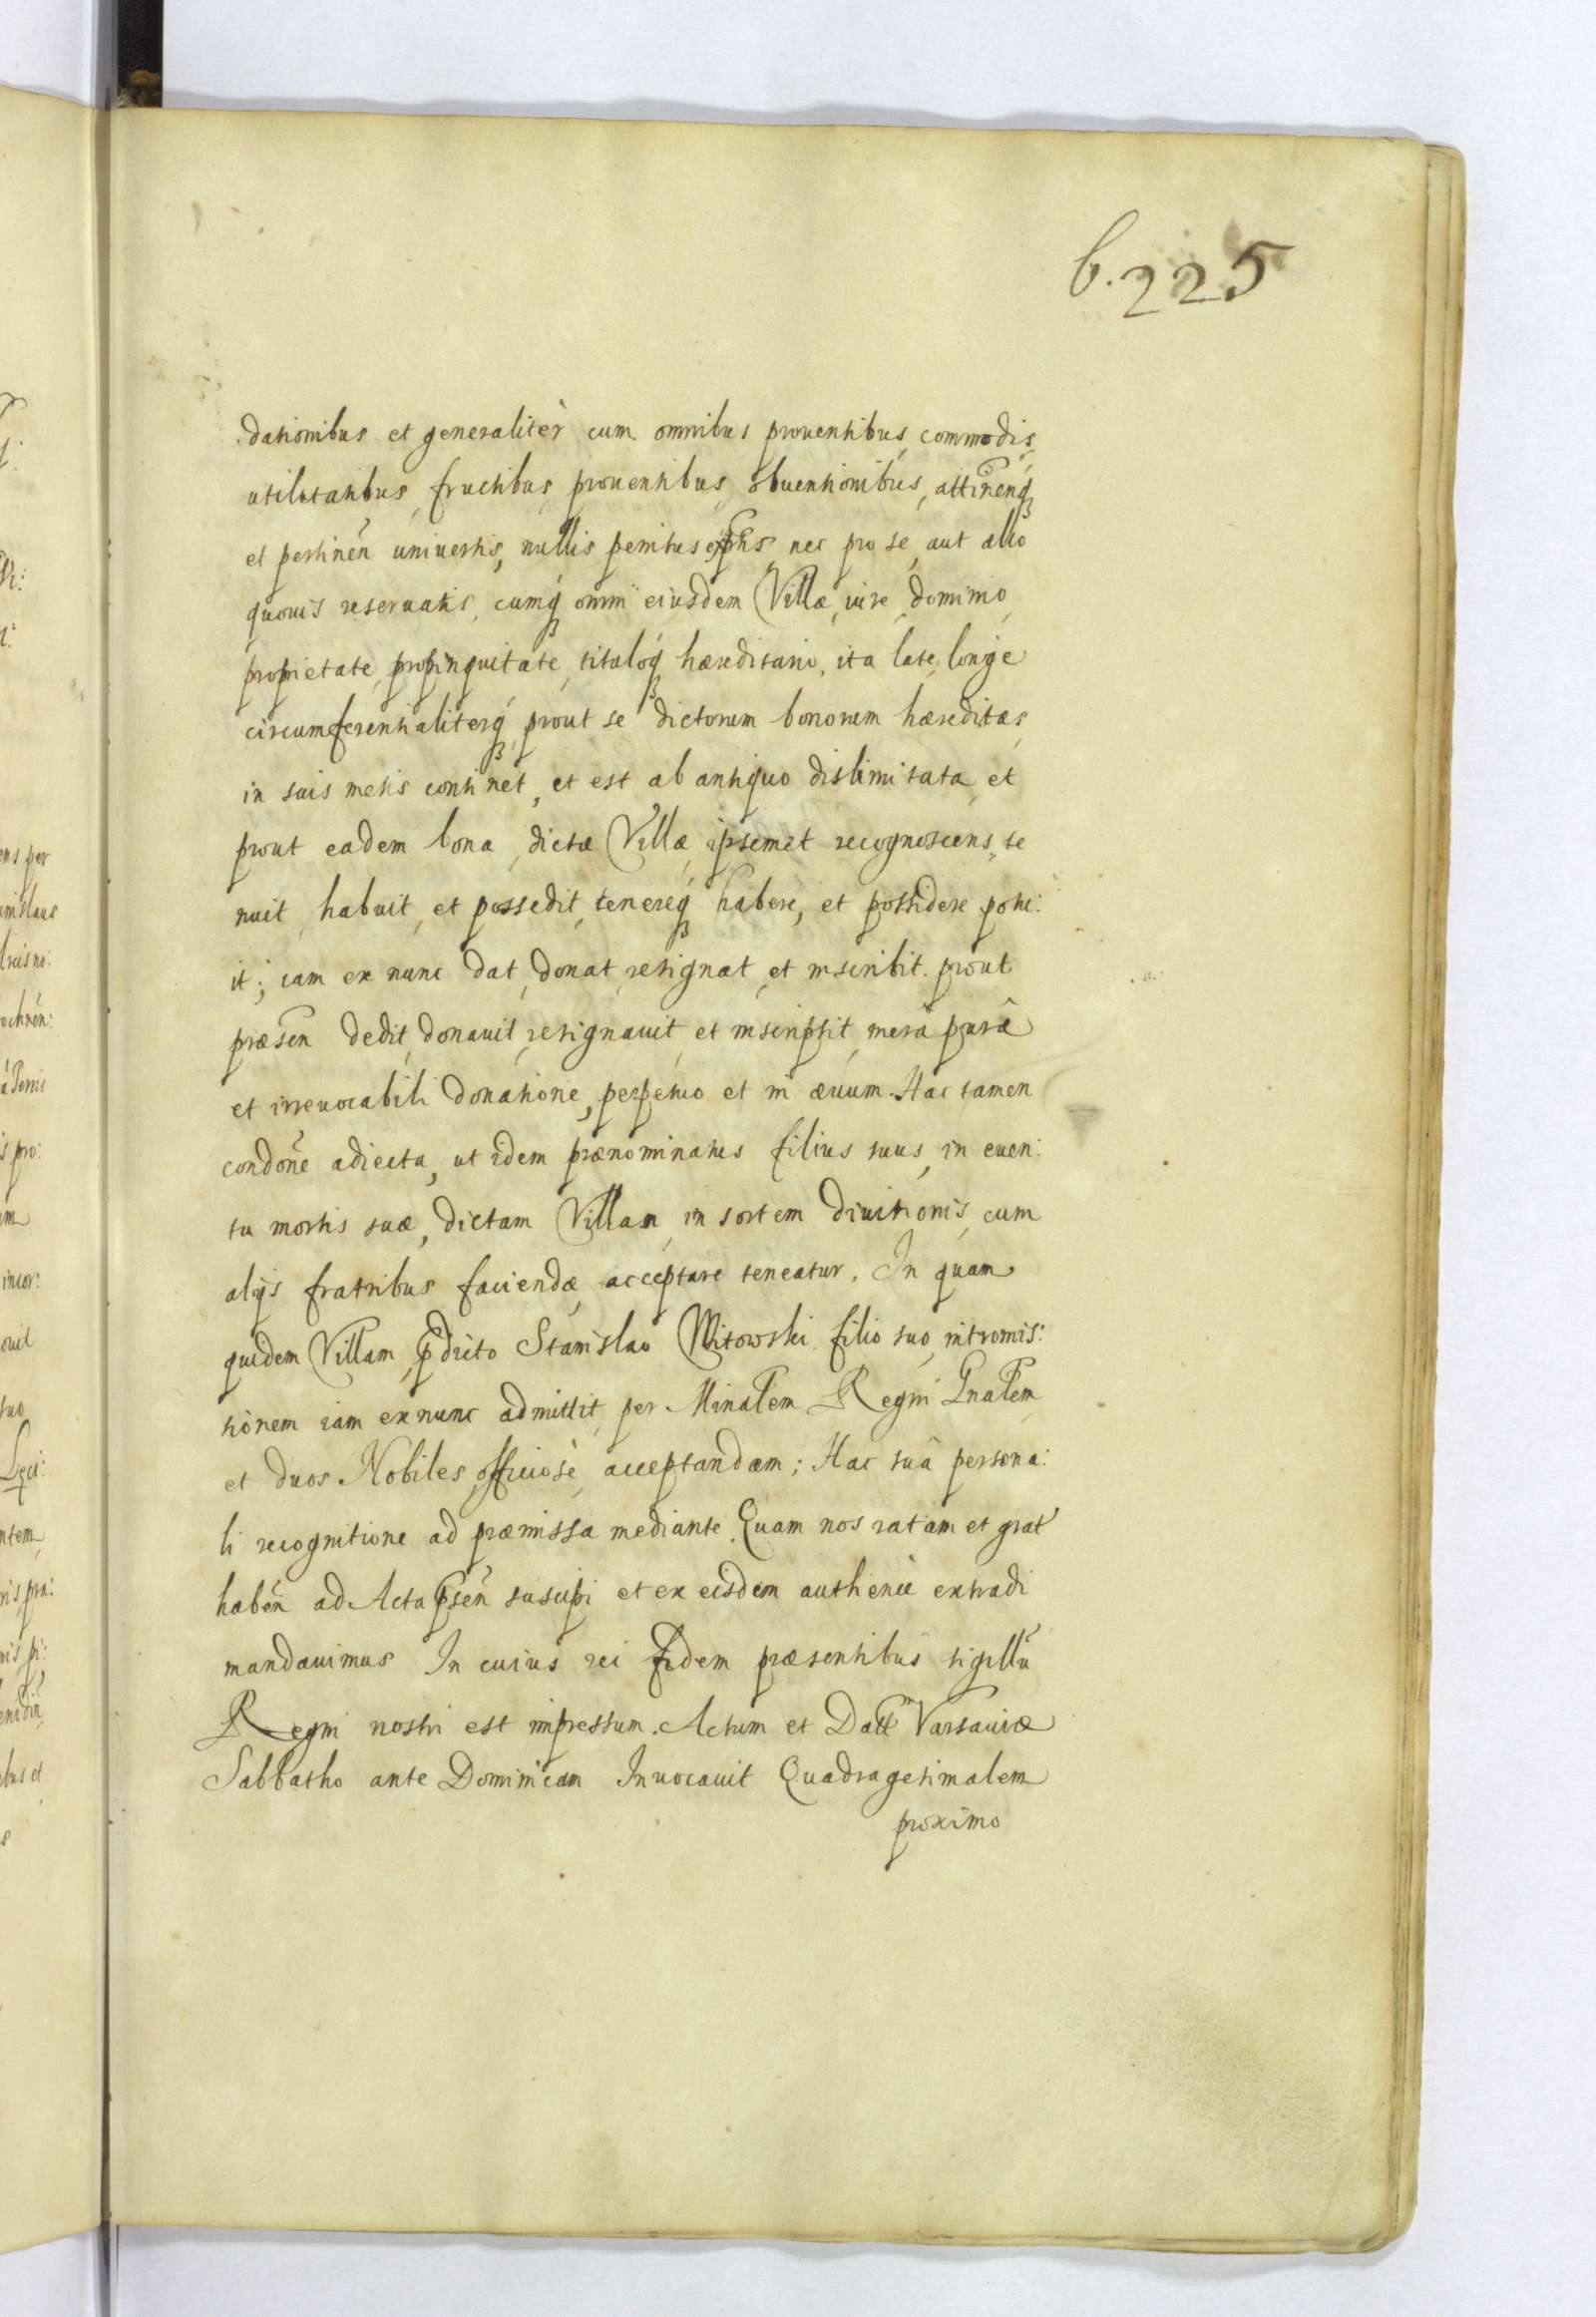 b. 225
dationibus et generalitèr cum omnibus prouentibus, commodis,
utilitatibus, fructibus, prouentibus, obuentionibus, attinenq́
et pertinen̄ uniuersis, nullis penitus exptis nec pro se, aut alio
quouis reseruatis, cumq́ omni eiusdem Villæ, iure, dominio,
proprietate, propinquitate, tituloq́ hæreditario, ita late, longe
circumferentialiterq́, prout se dictorum bonorum hæreditas,
in suis metis continet, et est ab antiquo dislimitata, et
prout eadem bona, dictæ Villæ, ipsemet recognoscens, te
nuit, habuit, et possedit, tenereq́ habere, et possidere potu:
it; iam ex nunc dat, donat, resignat, et inscribit. prout
præsen̄ dedit, donauit, resignauit, et inscripsit, merâ purâ
et irreuocabili donatione, perpetuo et in æuum. Hac tamen
condōne adiecta, ut idem prænominatus filius suus, in euen:
tu mortis suæ, dictam Villam, in sortem diuisionis, cum
alijs fratribus faciendæ, acceptare teneatur. In quam
quidem Villam, p̄dicto Stanislao Witowski, filio suo, intromis:
sionem iam ex nunc admittit, per Minalem Regni Gnalem
et duos Nobiles, officiosè, acceptandam; Hac suâ persona:
li recognitione ad præmissa mediante. Quam nos ratam et grat
haben̄ ad Acta p̄sen̄ suscipi et ex eisdem authenice extradi
mandauimus In cuius rei fidem præsentibus sigillū
Regni nostri est impressum. Actum et Datt Varsauiæ
Sabbatho ante Dominicam Inuocauit Quadragesimalem
proximo